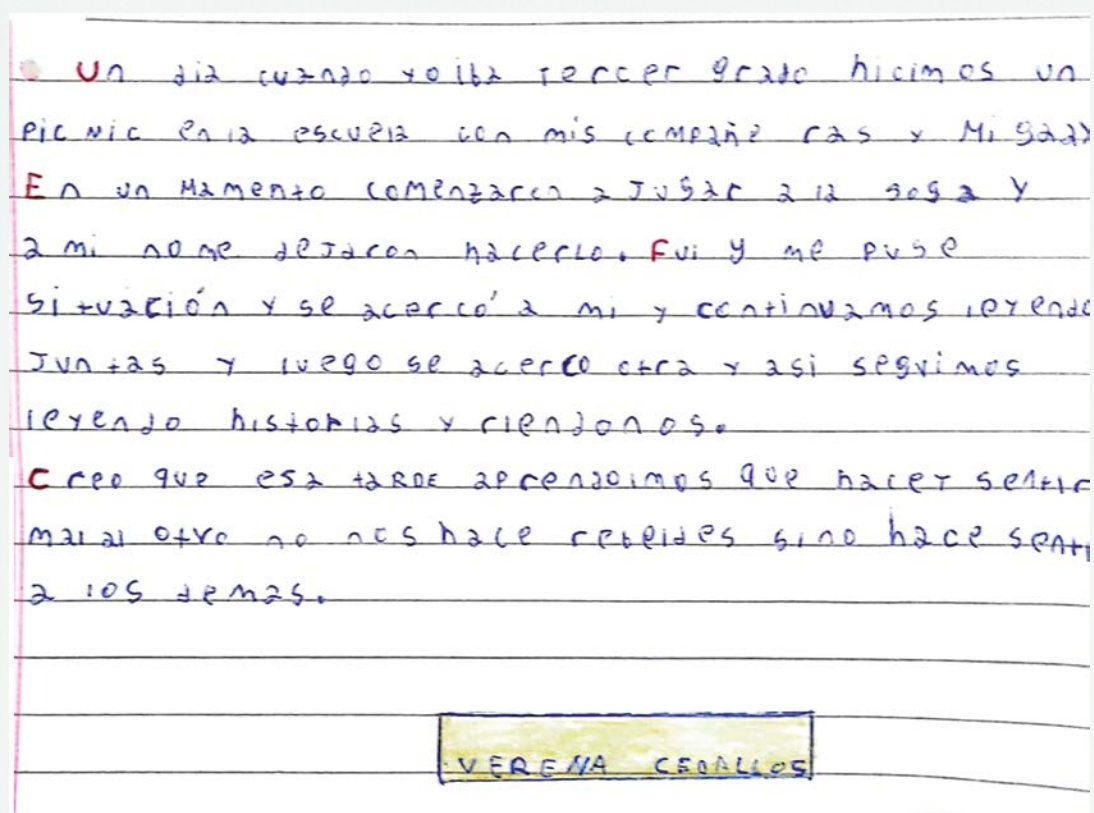 Un dia cuando yo iba tercer grado hicimos un
picnic en la escuela con mis compañe ras y Mi
En un Mamento comenzaron a Jugar a la soga y
a mi no me dejaron hacerlo. Fui y me puse
situación y se acercó a mi y continuamos leyendo
Juntas y luego se acerco otra y asi seguimos
leyendo historias y riendonos.
Creo que esa taRDE aprendoimos que hacer sentir
mal al otro no nos hace rebeldes sino hace senti
a los demas.
VERENA CEBALLOS